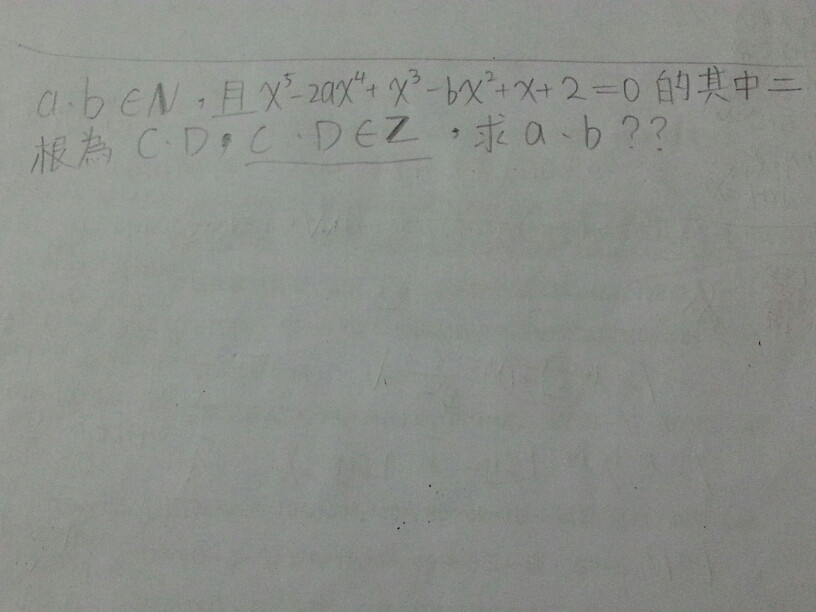 a、b∈N，且 x⁵-2ax⁴+x³-bx²+x+2=0 的其中二
根為 C、D，C、D∈Z，求 a、b？？